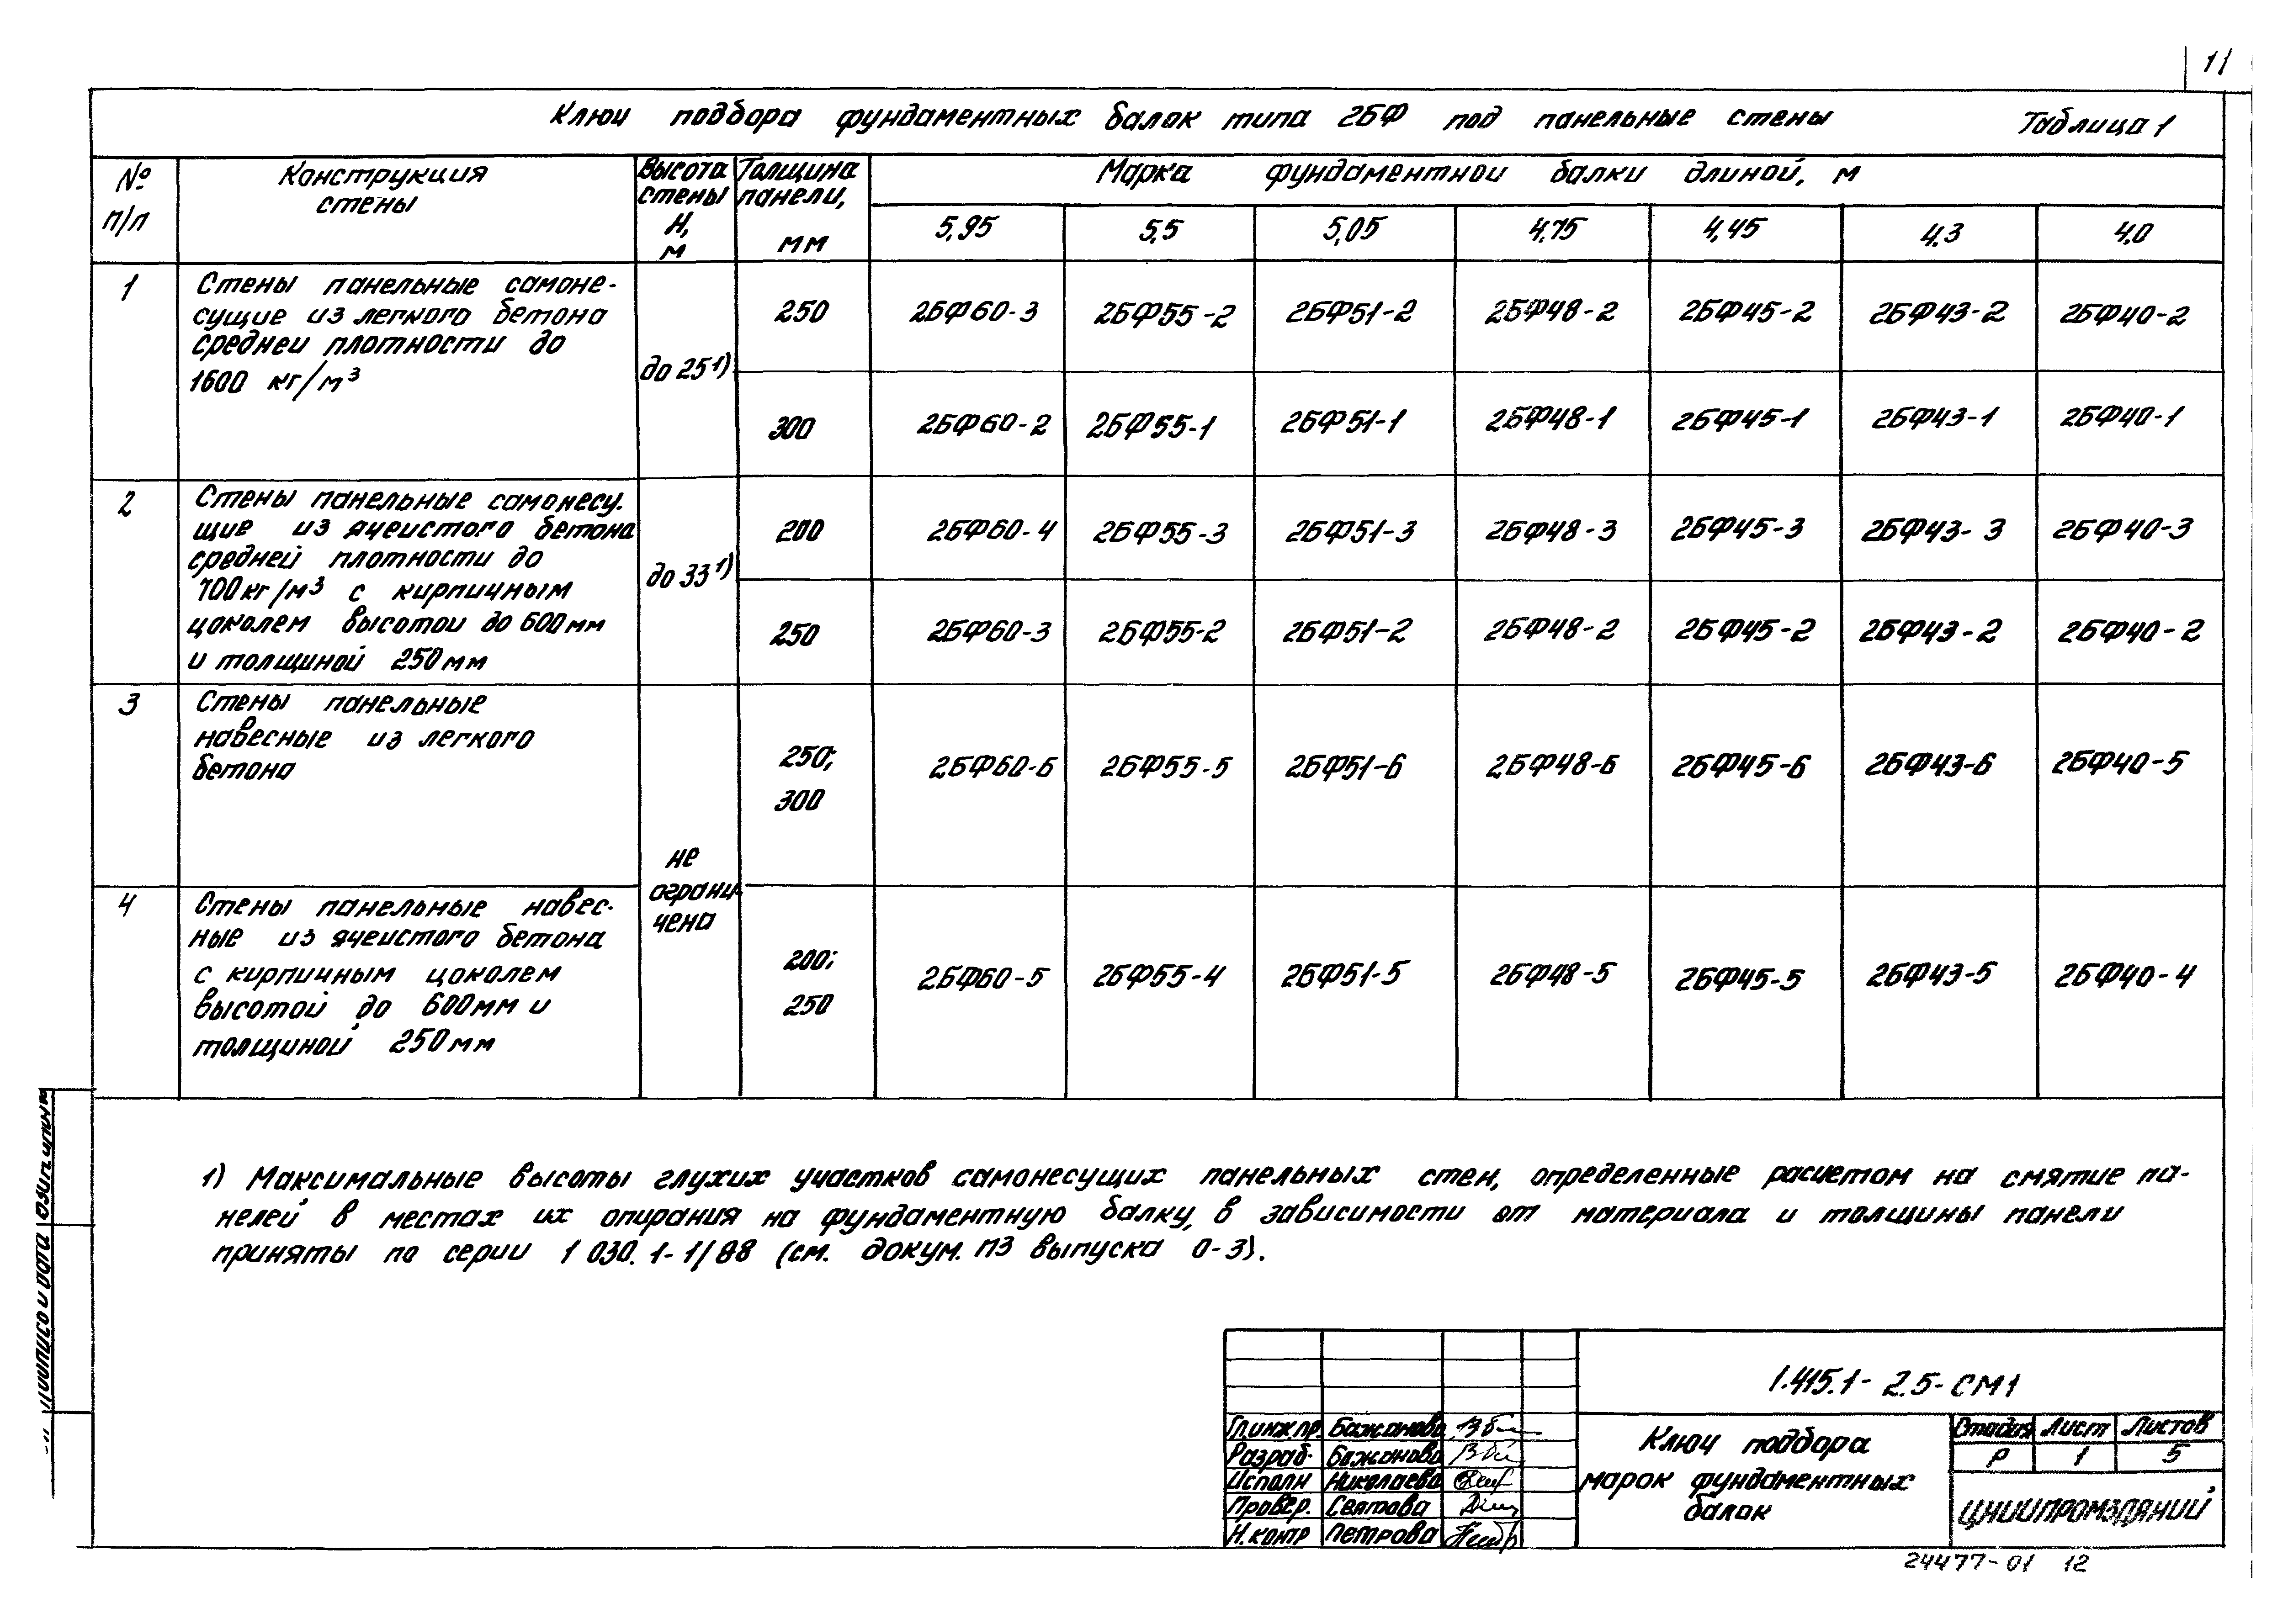 11
Ключи подбора фундаментных балок типа 2БФ под панельные стены Таблица 1
№ п/п
Конструкция стены
Высота стены Н, м
Толщина панели, мм
Марка фундаментной балки длиной, м
5,95 5,5 5,05 4,75 4,45 4,3 4,0
1
Стены панельные самоне-
сущие из легкого бетона
средней плотности до
1600 кг/м³
до 25 1)
250 2БФ60-3 2БФ55-2 2БФ51-2 2БФ48-2 2БФ45-2 2БФ43-2 2БФ40-2
300 2БФ60-2 2БФ55-1 2БФ51-1 2БФ48-1 2БФ45-1 2БФ43-1 2БФ40-1
2
Стены панельные самонесу-
щие из ячеистого бетона
средней плотности до
700 кг/м³ с кирпичным
цоколем высотой до 600 мм
и толщиной 250 мм
до 33 1)
200 2БФ60-4 2БФ55-3 2БФ51-3 2БФ48-3 2БФ45-3 2БФ43-3 2БФ40-3
250 2БФ60-3 2БФ55-2 2БФ51-2 2БФ48-2 2БФ45-2 2БФ43-2 2БФ40-2
3
Стены панельные
навесные из легкого
бетона
не
ограни-
чена
250;
300
2БФ60-6 2БФ55-5 2БФ51-6 2БФ48-6 2БФ45-6 2БФ43-6 2БФ40-5
4
Стены панельные навес-
ные из ячеистого бетона
с кирпичным цоколем
высотой до 600 мм и
толщиной 250 мм
200;
250
2БФ60-5 2БФ55-4 2БФ51-5 2БФ48-5 2БФ45-5 2БФ43-5 2БФ40-4
1) Максимальные высоты глухих участков самонесущих панельных стен, определенные расчетом на смятие па-
нелей в местах их опирания на фундаментную балку, в зависимости от материала и толщины панели
приняты по серии 1 030. 1-1/88 (см. докум. ПЗ выпуска 0-3).
Подпись и дата
1.415.1-2.5-СМ1
Гл.инж.пр. Бажанова
Разраб. Бажанова
Исполн Николаева
Провер. Святова
Н.контр Петрова
Ключи подбора
марок фундаментных
балок
Стадия Лист Листов
Р 1 5
ЦНИИПРОМЗДАНИЙ
24477-01 12